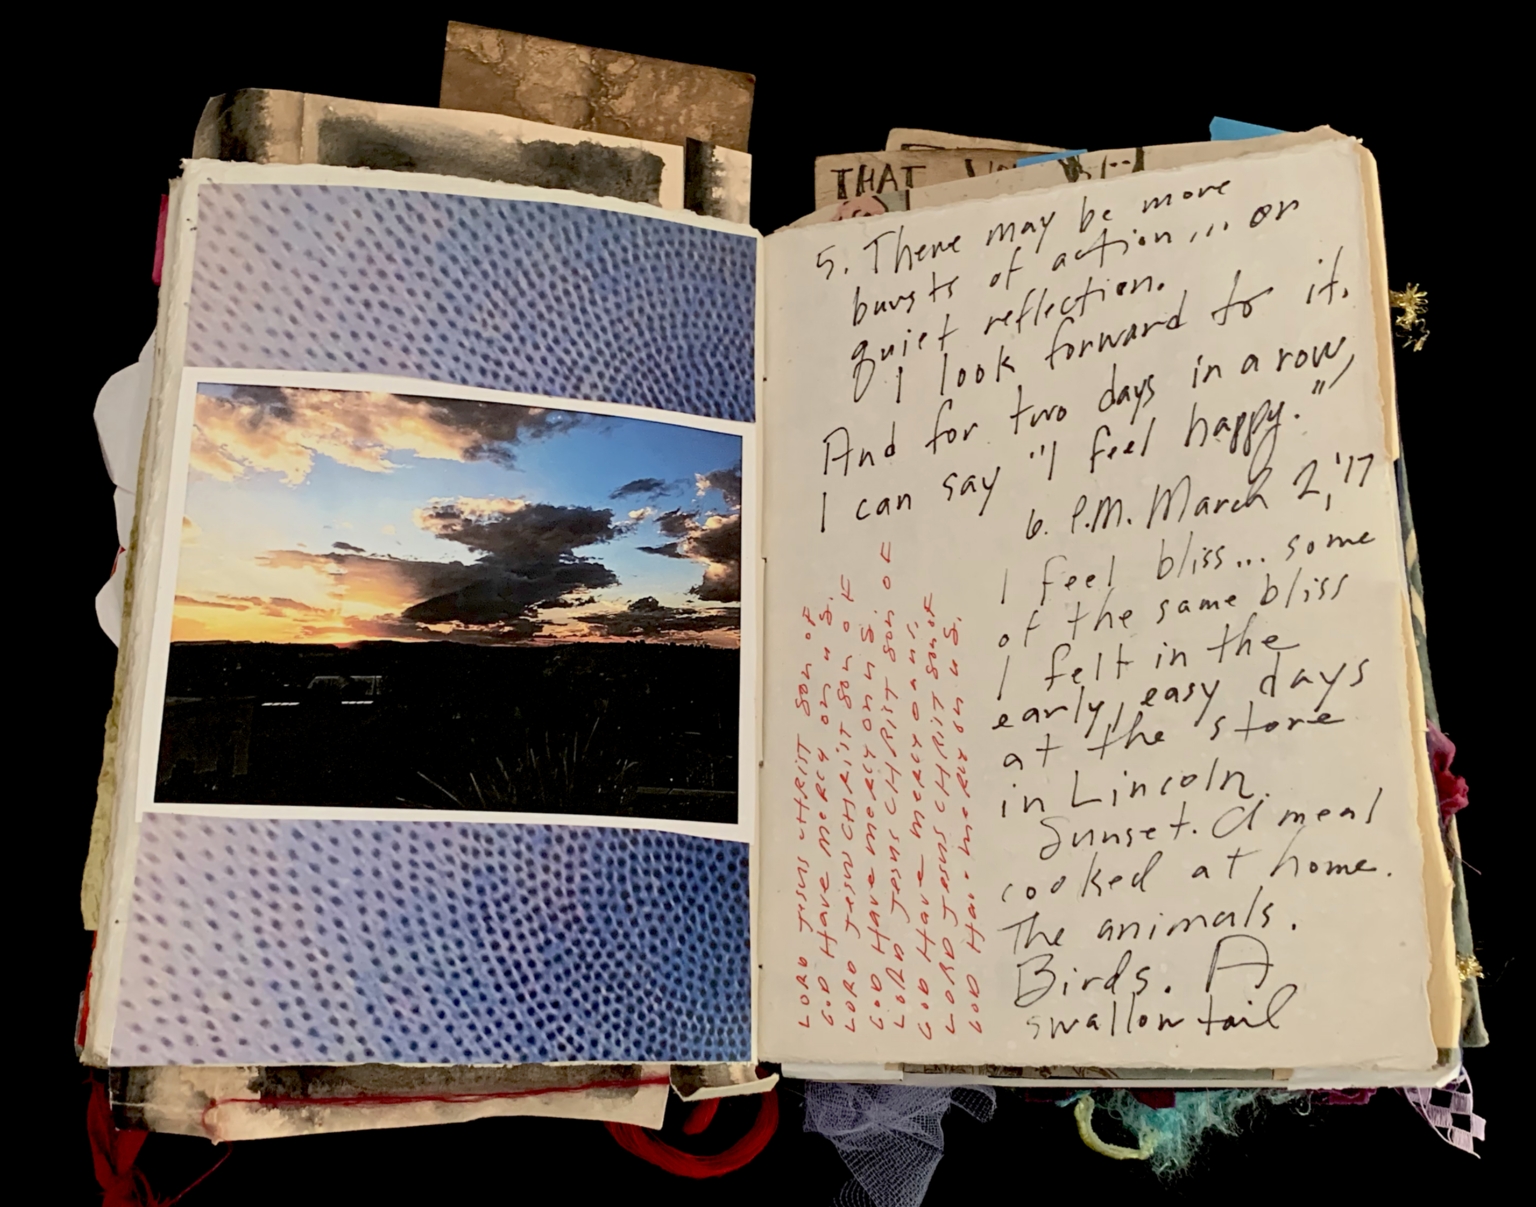 THAT
5. There may be more
bursts of action... or
quiet reflection.
I look forward to it.
And for two days in a row,
I can say "I feel happy."
6. P.M. March 2, '17
I feel bliss... some
of the same bliss
I felt in the
early, easy days
at the store
in Lincoln.
Sunset. A meal
cooked at home.
The animals.
Birds. A
swallowtail
LORD JESUS CHRIST SON OF
GOD HAVE MERCY ON US.
LORD JESUS CHRIST SON OF
GOD HAVE MERCY ON US.
LORD JESUS CHRIST SON OF
GOD HAVE MERCY ON US.
LORD JESUS CHRIST SON OF
GOD HAVE MERCY ON US.